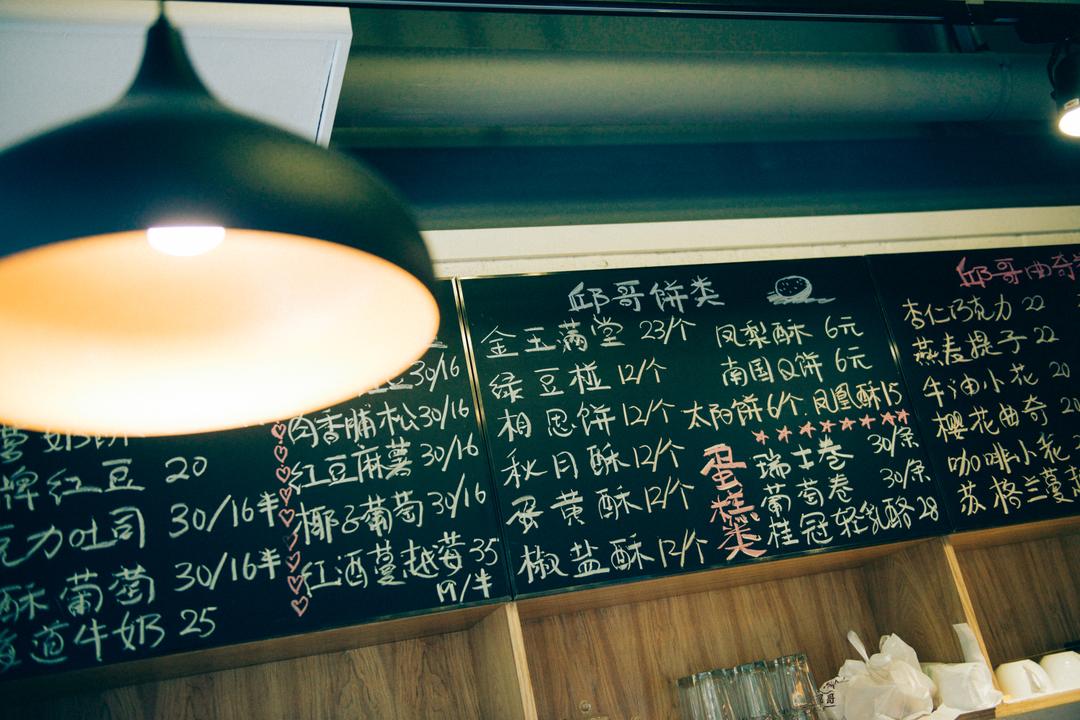 奶
牌红豆 20
克力吐司 30/16半
酥葡萄 30/16半
海道牛奶 25
豆30/16
肉香脯松30/16
红豆麻薯30/16
椰子葡萄30/16
红酒蔓越莓35
19/半
邱哥饼类
金玉满堂 23/个
绿豆椪 12/个
相思饼 12/个
秋月酥 12/个
蛋黄酥 12/个
椒盐酥 12/个
凤梨酥 6元
南国Q饼 6元
太阳饼6/个.凤凰酥15
蛋糕类
瑞士卷 30/条
葡萄卷 30/条
桂冠轻乳酪 28
邱哥曲奇
杏仁巧克力 22
燕麦提子 22
牛油小花 20
樱花曲奇 20
咖啡小花
苏格兰蔓越